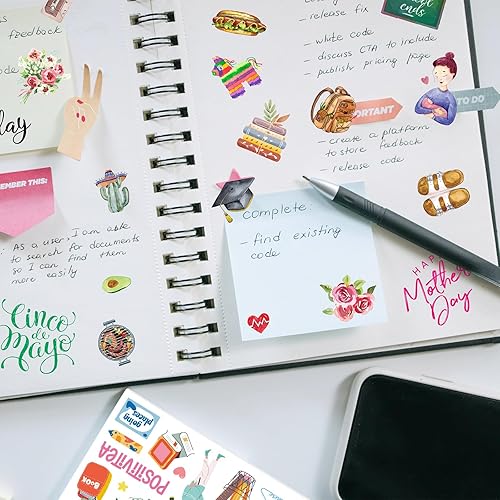 feedback
code
EMBER THIS:
As a user, I am able
to search for documents
so I can find them
more easily
Cinco
de
Mayo
ends
- release fix
- white code
- discuss CTA to include
- publish pricing page
ORTANT
TO DO
- create a platform
to store feedback
- release code
Complete:
- find existing
code
HAPPY
Mother's
Day
going
places
POSITIVITEA
BOOK